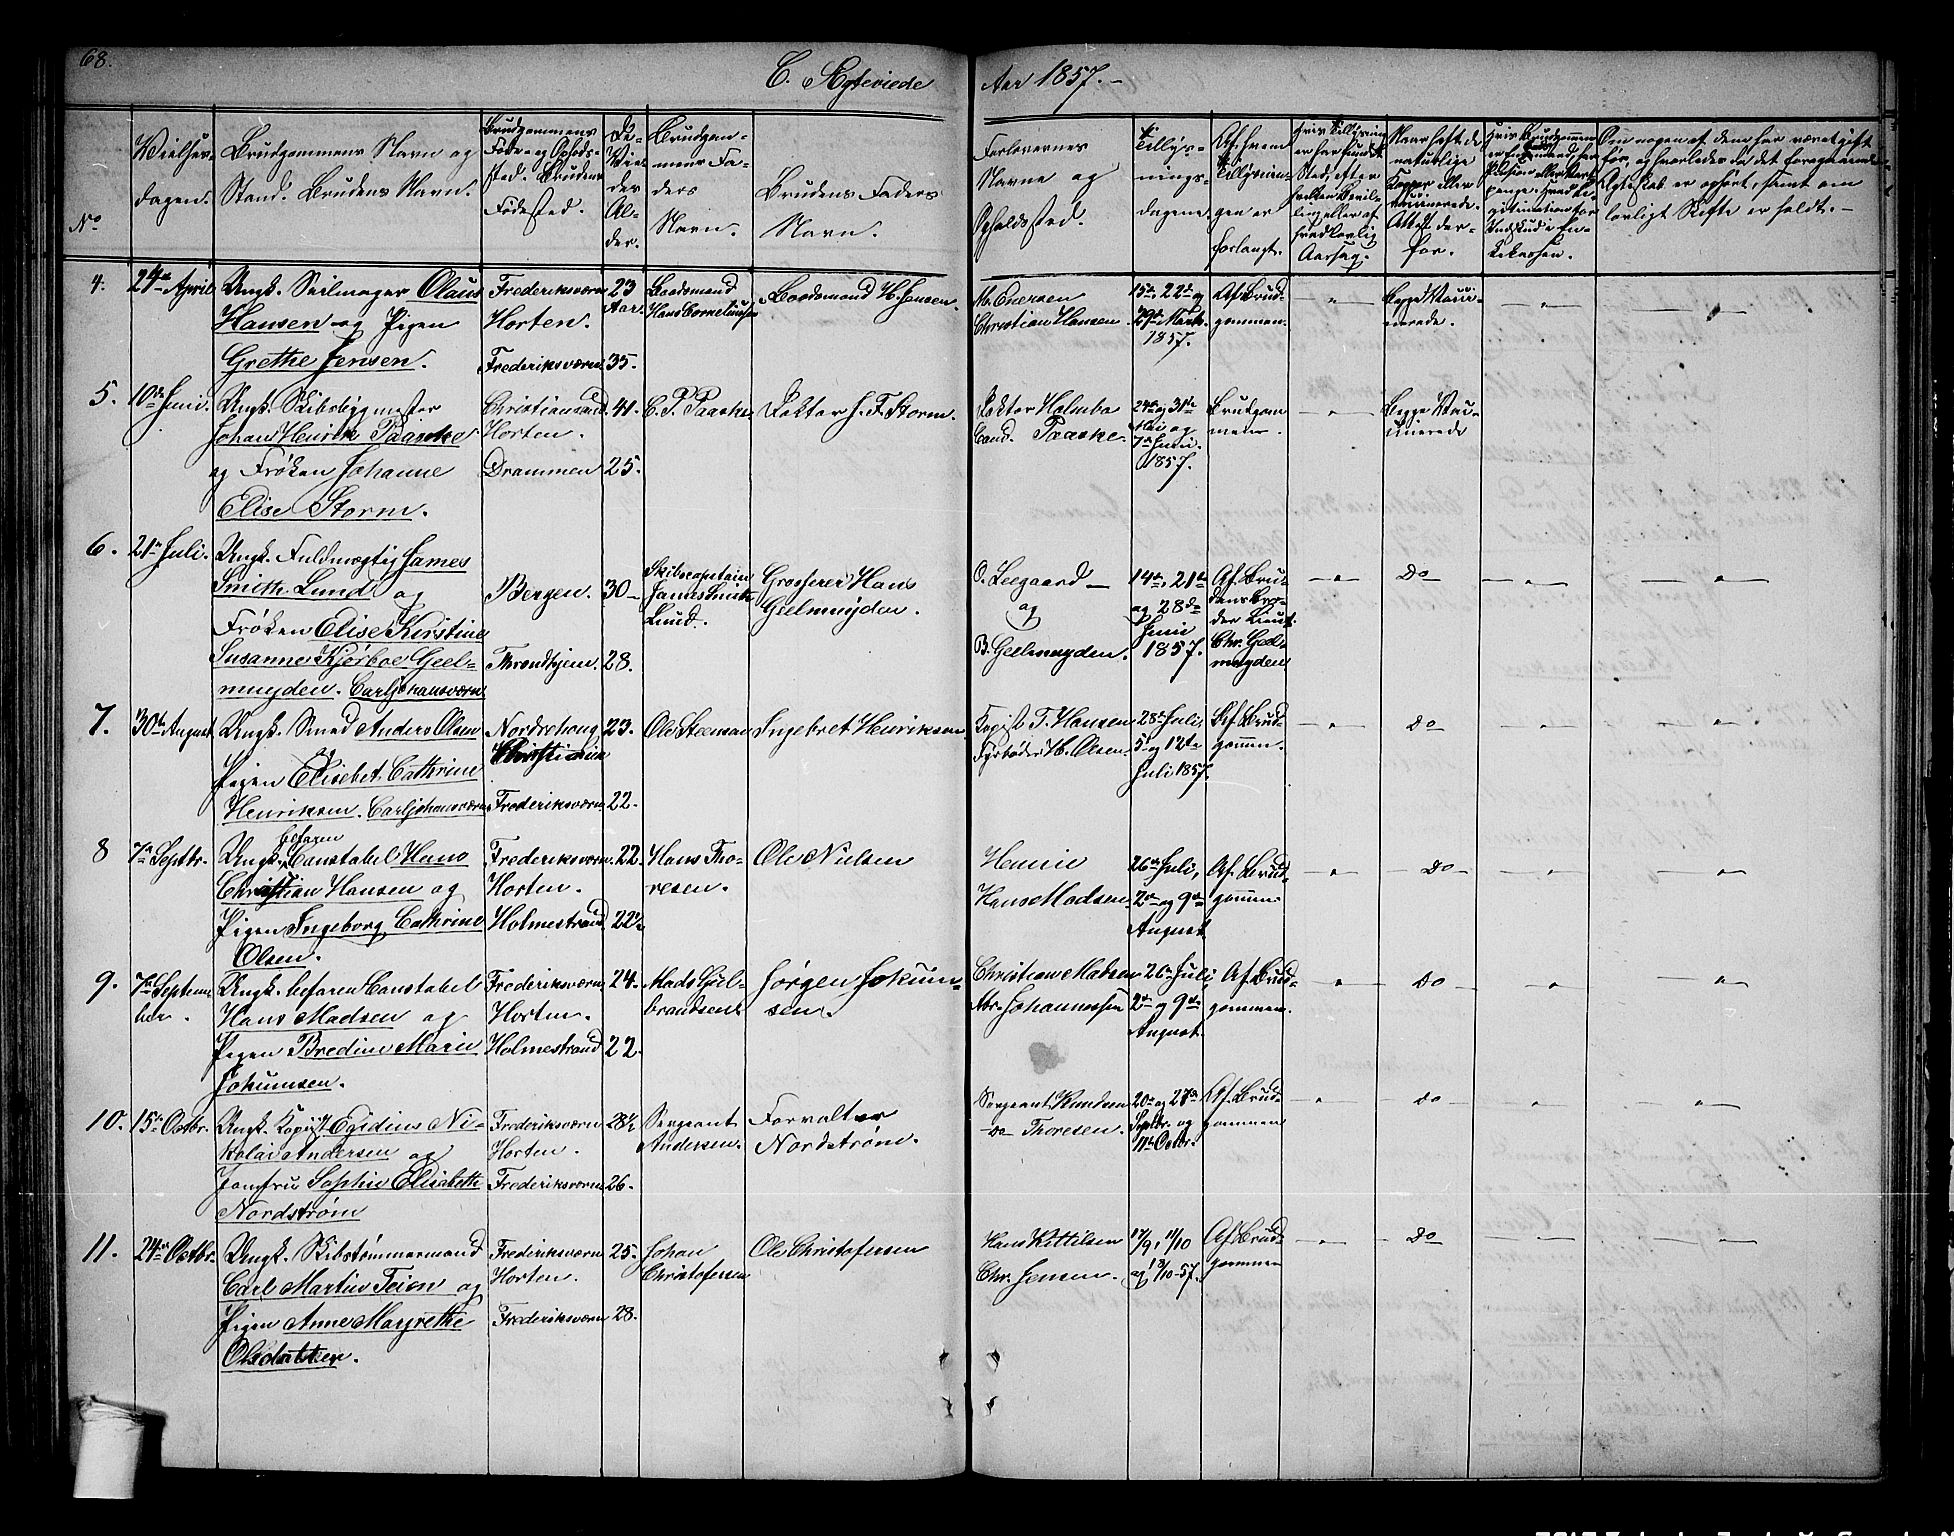 68.
C. Ægteviede
Aar 1857.
No
Vielses-
dagen.
Brudgommens Navn og
Stand. Brudens Navn.
Brudgommens
Føde- og Opholds-
sted. Brudens
Fødested.
De
Vie-
des
Al-
der.
Brudgom-
mens Fa-
ders
Navn.
Brudens Faders
Navn.
Forlovernes
Navne og
Opholdssted.
Tillys-
nings-
dagene.
Af hvem
Tillysnin-
gen er
forlangt.
4.
24de April
Ungk. Seilmager Olaus
Hansen og Pigen
Grethe Jensen.
Frederiksværn
Horten.
Frederiksværn
23
Aar.
35.
Baadsmand
Hans Corneliussen
Baadsmand H. Jensen.
M. Enersen
Christian Hansen
15de, 22de og
29de Marts
1857.
Af Brud-
gommen.
Begge Vacci-
nerede.
5.
10de Juni.
Ungk. Skibsbygmester
Johan Henrik Paaske
og Frøken Johanne
Elise Storm.
Christiansand
Horten.
Drammen
41.
25.
C. P. Paaske.
Doktor J. F. Storm.
Doktor Holmboe
Cand. Paaske.
24de og 31te
Mai og
7de Juni.
1857.
Brudgom-
men.
Begge Vac-
cinerede
6.
21de Juli.
Ungk. Fuldmægtig James
Smith Lund og
Frøken Elise Kirstine
Susanne Kjerboe Geel-
muyden. Carljohansværn
Bergen.
Throndhjem.
30
28.
Skibscapitain
James Smith
Lund.
Grosserer Hans
Gielmuyden.
O. Leegaard
og
B. Geelmuyden.
14de, 21de
og 28de
Juni
1857.
Af Bru-
dens Bro-
der Lieut.
Chr. Geel-
muyden
Do
7.
30te August
Ungk. Smed Anders Olsen
og
Pigen Elisebet Cathrine
Henriksen. Carljohansværn
Nordrehoug
Christiania
Frederiksværn
23.
22.
Ole Steensen
Ingebret Henriksen
T. Hansen
Fyrbøder H. Olsen.
28de Juli,
5te og 12te
Juli 1857.
Af Brud-
gommen.
Do
8
7de Septbr.
befaren
Ungk. Constabel Hans
Christian Hansen og
Pigen Ingeborg Cathrine
Olsen.
Frederiksværn
Horten.
Holmestrand
22.
22½
Hans Tho-
resen.
Ole Nielsen
Hans Madsen
26de Juli,
2den og 9de
August
Af Brud-
gommen
Do
9.
7de Septem-
ber.
Ungk. befaren Constabel
Hans Madsen og
Pigen Bredine Marie
Jokumsen.
Frederiksværn
Horten.
Holmestrand
24.
22.
Mads Gul-
brandsen
Jørgen Jokum-
sen.
Christian Madsen
Abr. Johannessen
26de Juli
2den og 9de
August
Af Brud-
gommen.
Do
10.
15de Octbr.
Ungk. Kopiist Egidius Ni-
kolai Andersen og
Jomfru Sophie Elisabeth
Nordstrøm
Frederiksværn
Horten.
Frederiksværn
28½
26.
Sergeant
Andersen.
Forvalter
Nordstrøm.
Sergeant Knudsen
Do Thoresen.
20de og 27de
Septbr. og
11te Octbr.
Af Brud-
gommen
Do
11.
24de Octbr.
Ungk. Skibstømmermand
Carl Martin Teien og
Pigen Anne Margrethe
Olsdatter.
Frederiksværn
Horten.
Frederiksværn
25.
28.
Johan
Christofersen
Ole Christofersen
Hans Kittilsen
Chr. Jensen.
17/9, 11/10
og 18/10-57.
Af Brud-
gommen
Do